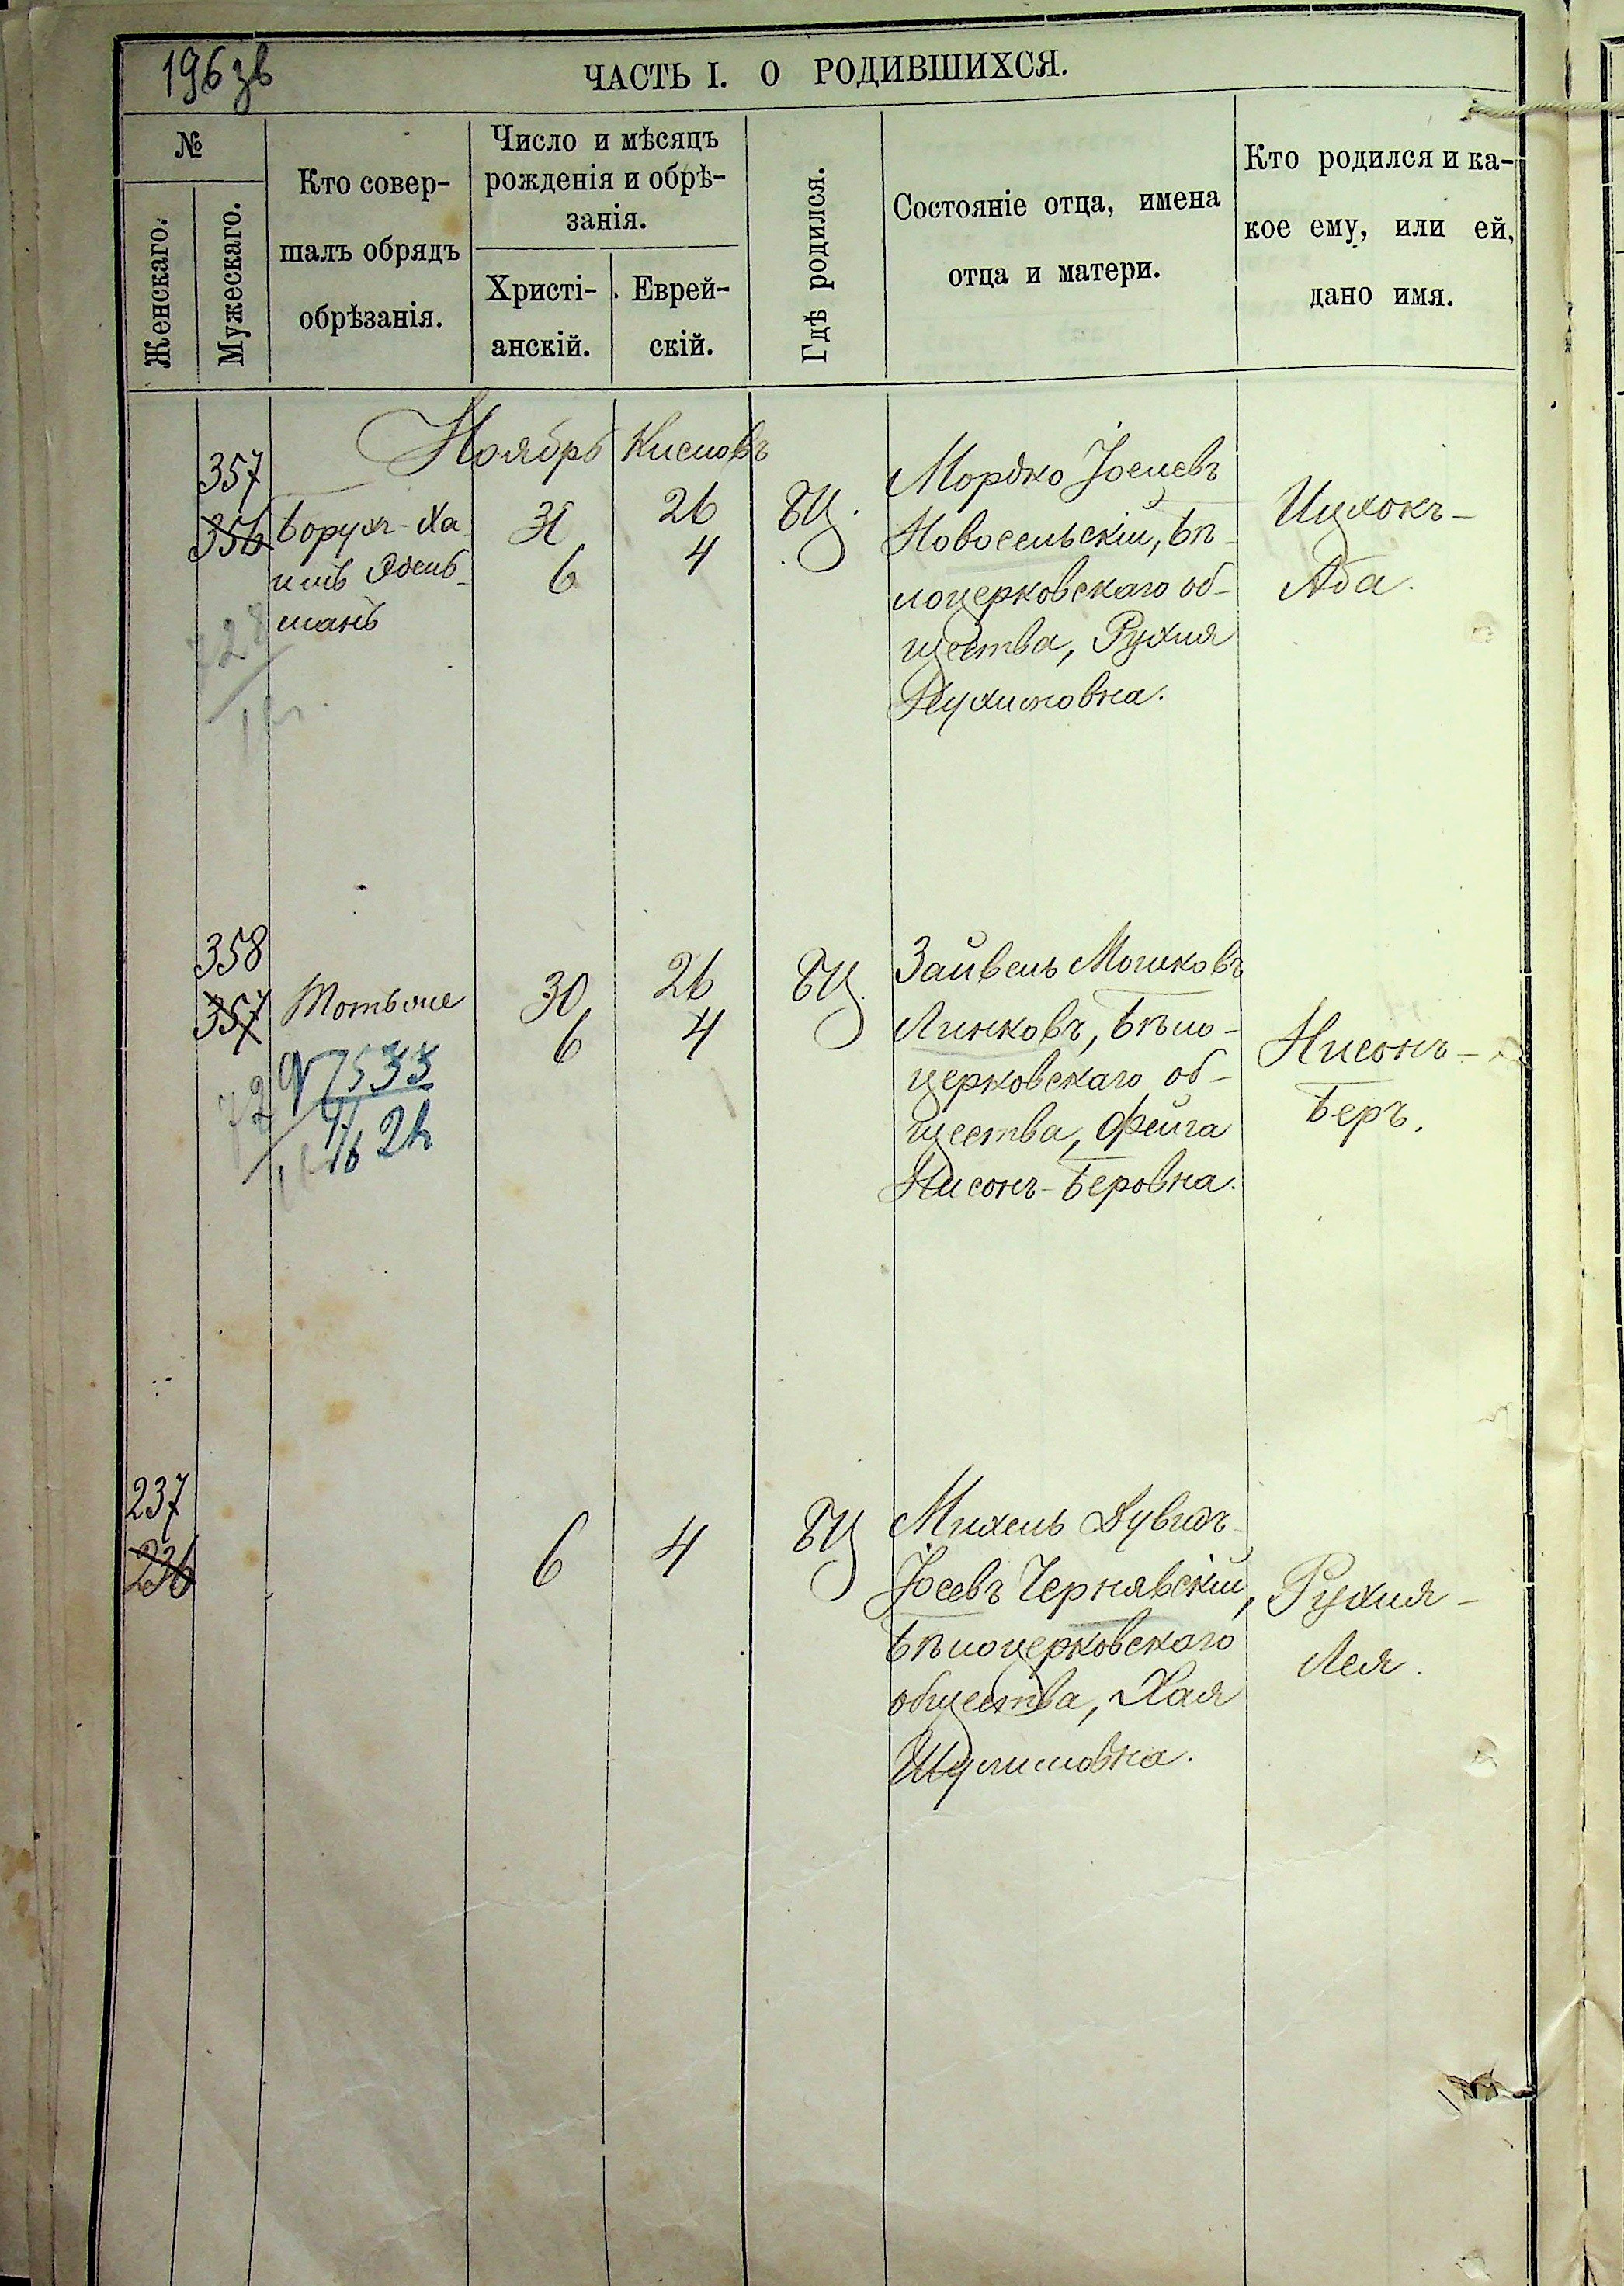 196 зв
ЧАСТЬ I. О РОДИВШИХСЯ.
№
Женскаго.
Мужескаго.
Кто совер-
шалъ обрядъ
обрѣзанія.
Число и мѣсяцъ
рожденія и обрѣ-
занія.
Христі-
анскій.
Еврей-
скій.
Гдѣ родился.
Состояніе отца, имена
отца и матери.
Кто родился и ка-
кое ему, или ей,
дано имя.
Ноябрь Кислевъ
357
356
Борухъ-Ха
имъ Эдель-
манъ
6
26
4
БЦ.
Мордко Іоселевъ
Новосельскій, Бѣ-
лоцерковскаго об-
щества, Рухля
Нухимовна.
Ицхокъ-
Аба.
358
357
Тотъ же
30
6
26
4
БЦ.
Зайвель Мошковъ
Линковъ, Бѣло-
церковскаго об-
щества, Фейга
Нисонъ-Беровна.
Нисонъ-
Беръ.
237
236
6
4
БЦ
Михель Дувидъ-
Іосевъ Чернявскій,
Бѣлоцерковскаго
общества, Хая
Шулимовна.
Рухля-
Лея.